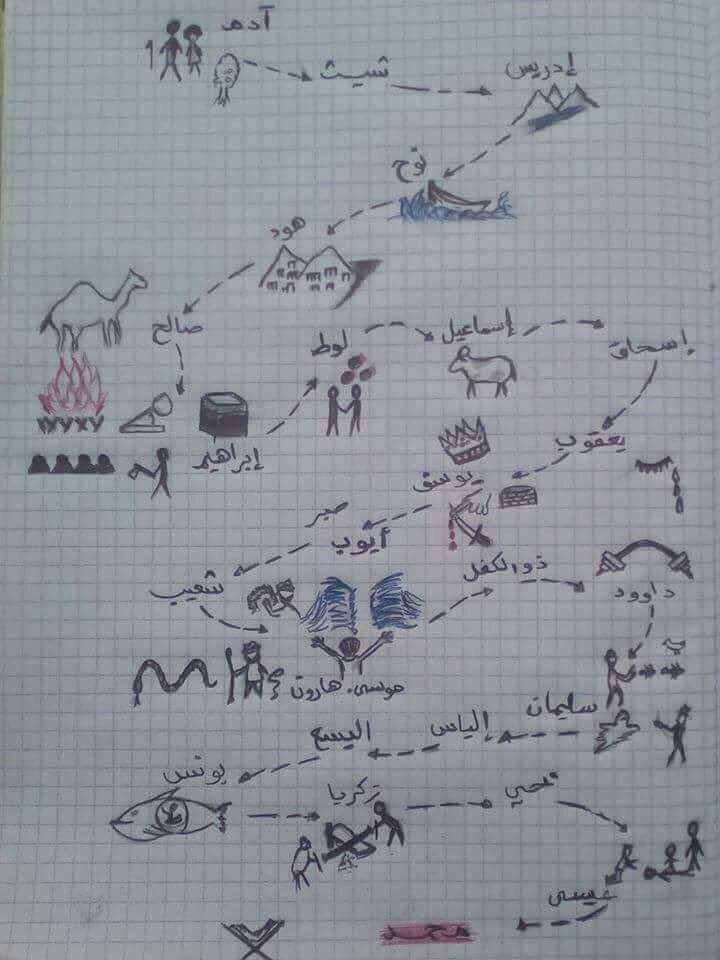 آدم
شيث
إدريس
نوح
هود
صالح
إبراهيم
لوط
إسماعيل
إسحاق
يعقوب
يوسف
صبر
أيوب
شعيب
موسى. هارون
ذو الكفل
داوود
سليمان
إلياس
اليسع
يونس
زكريا
يحي
عيسى
محمد